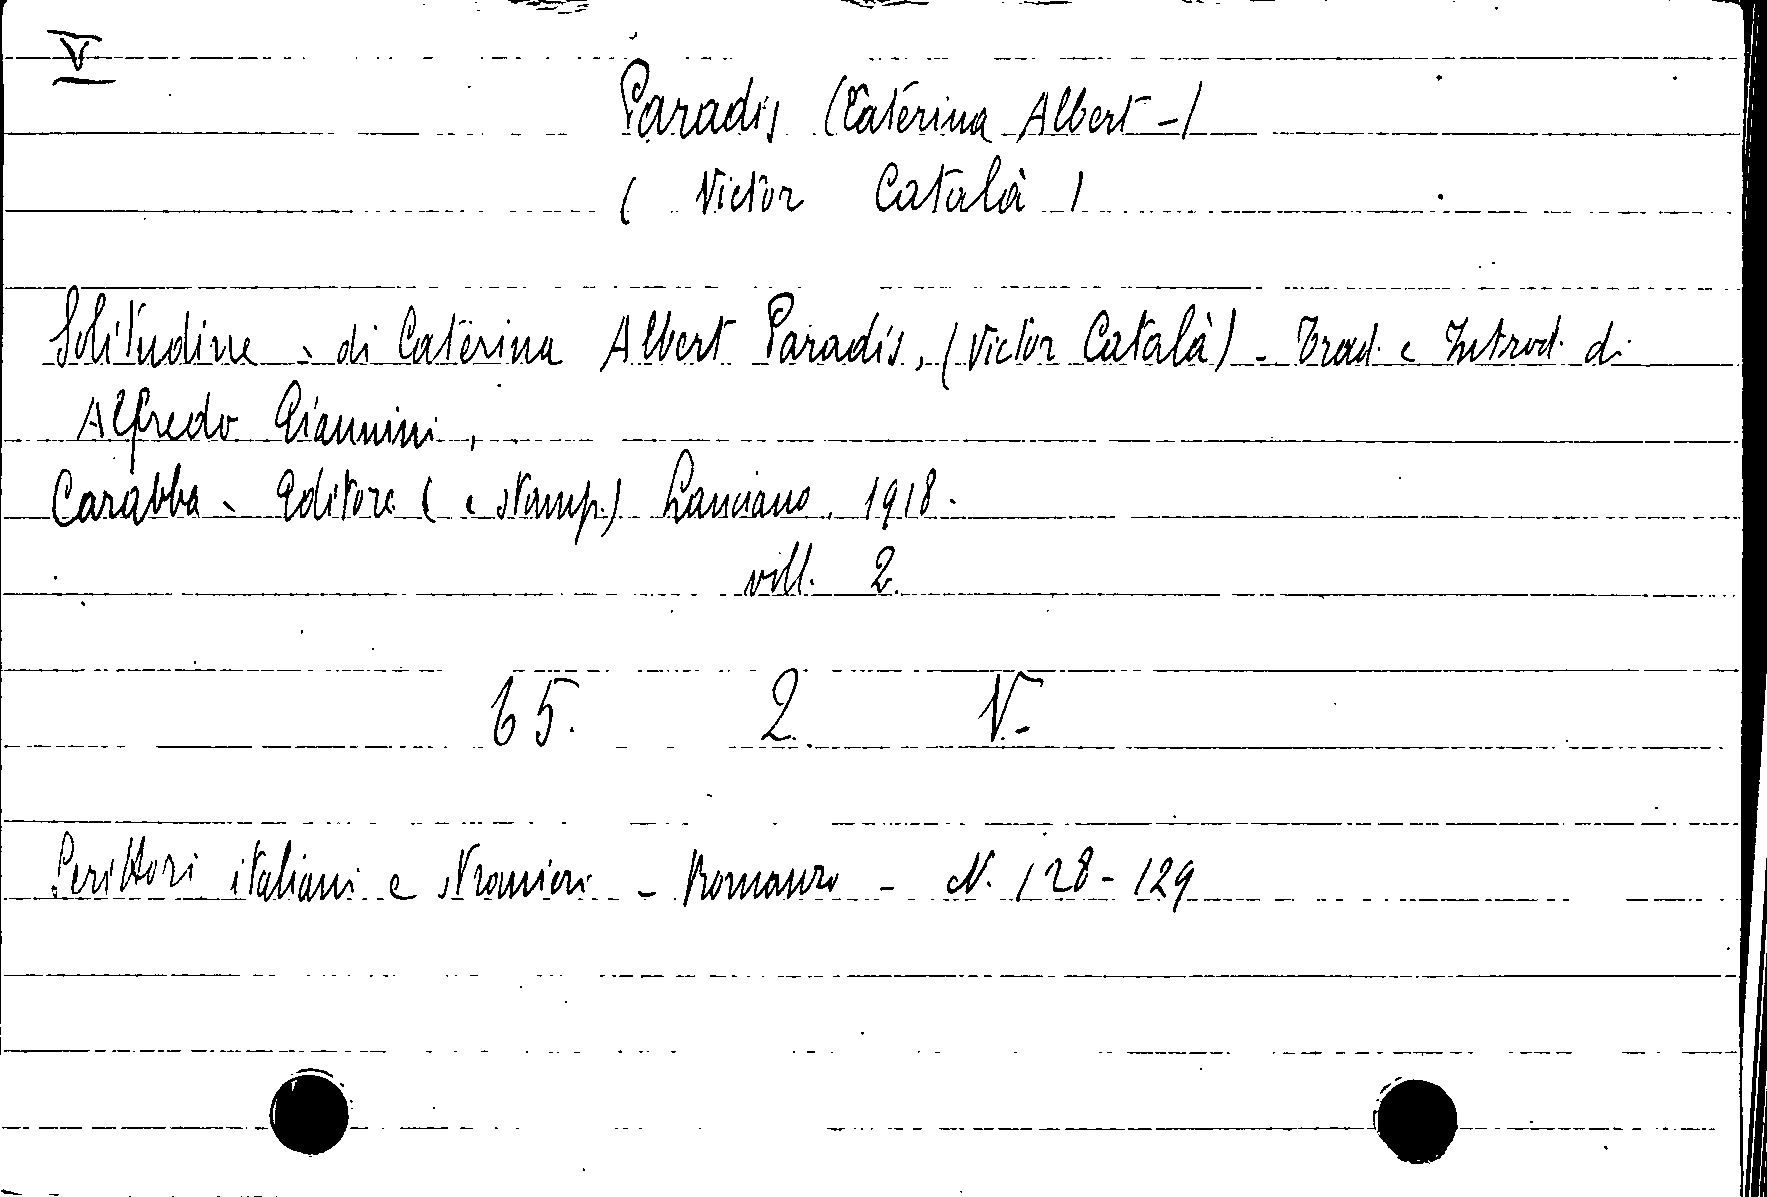 V
Paradis (Caterina Albert -)
( Victor Català )
Solitudine - di Caterina Albert Paradis, (Victor Català) - Trad. e Introd. di
Alfredo Giannini,
Carabba - Editore ( e stamp.) Lanciano, 1918 -
voll. 2.
65. 2. V.-
Scrittori italiani e stranieri - Romanzo - N. 128-129